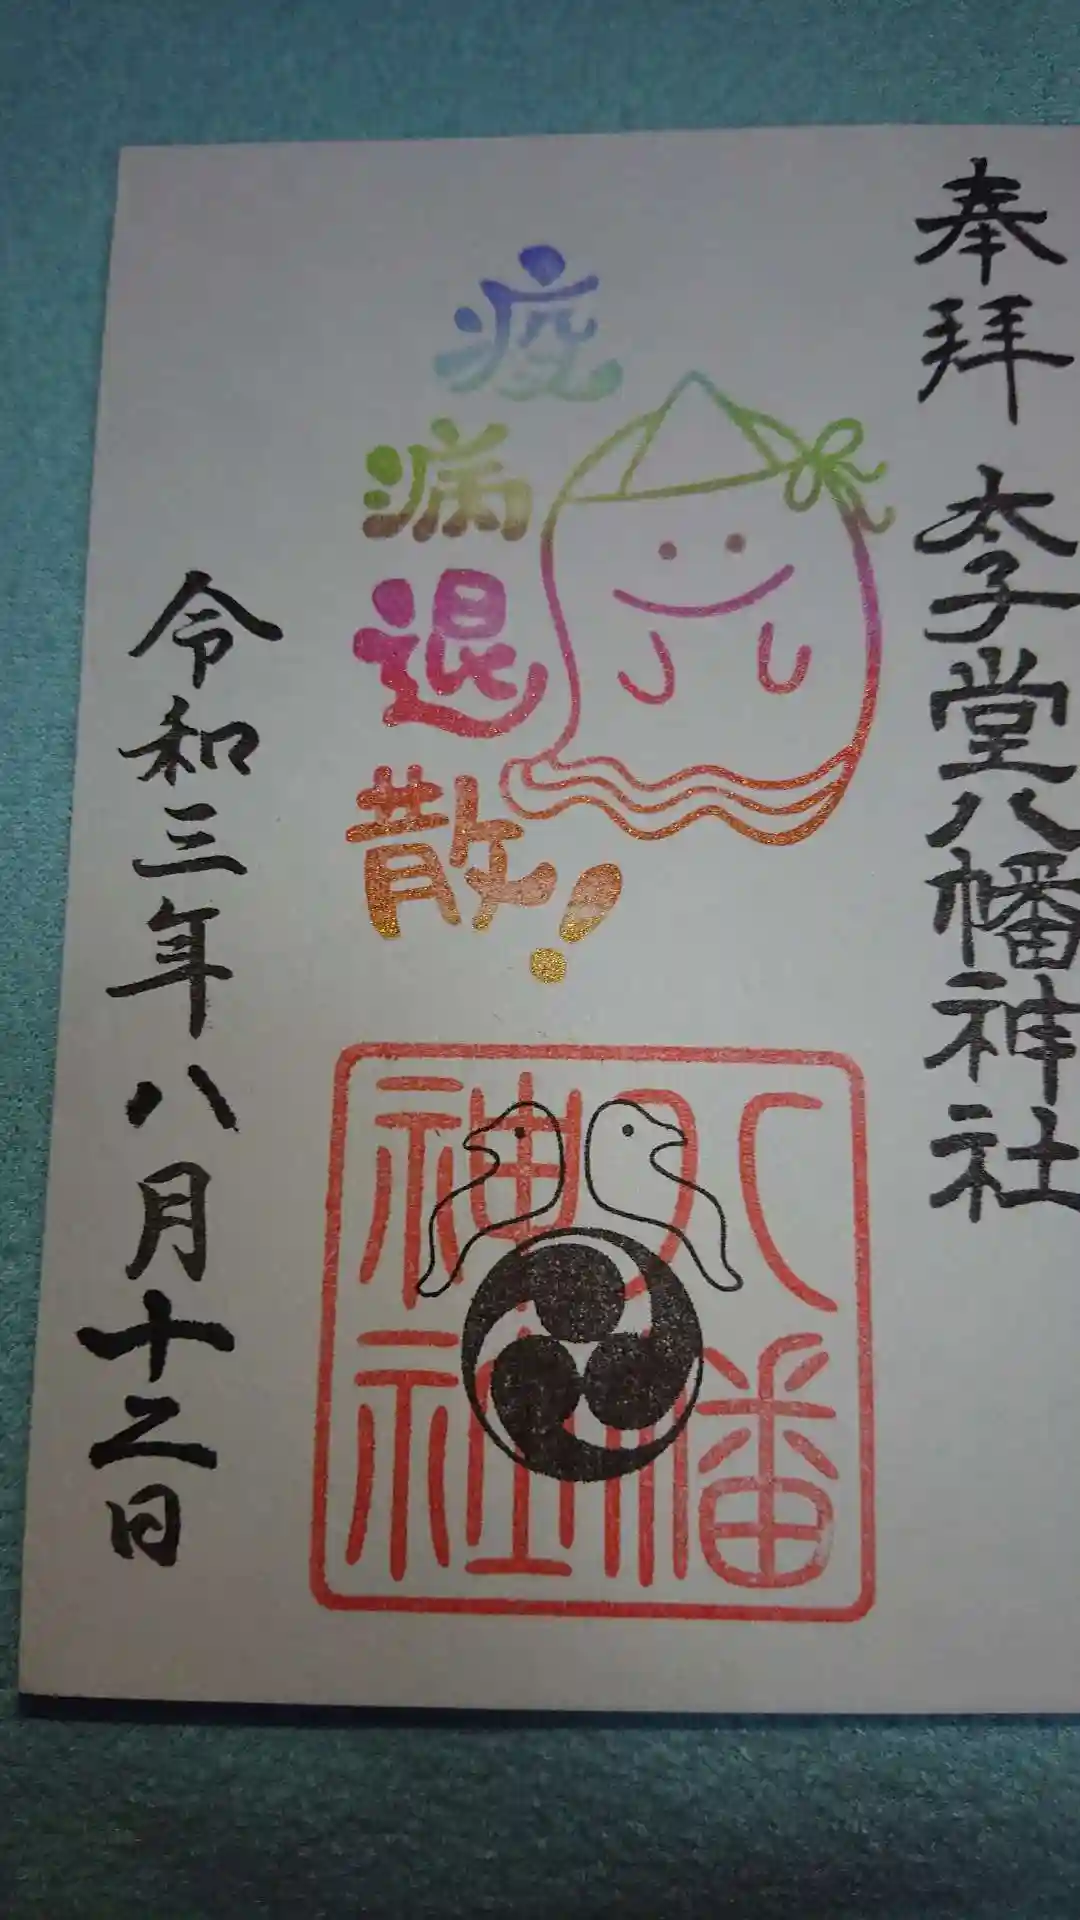 奉拝 太子堂八幡神社
疫病退散!
八幡
神社
令和三年八月十二日